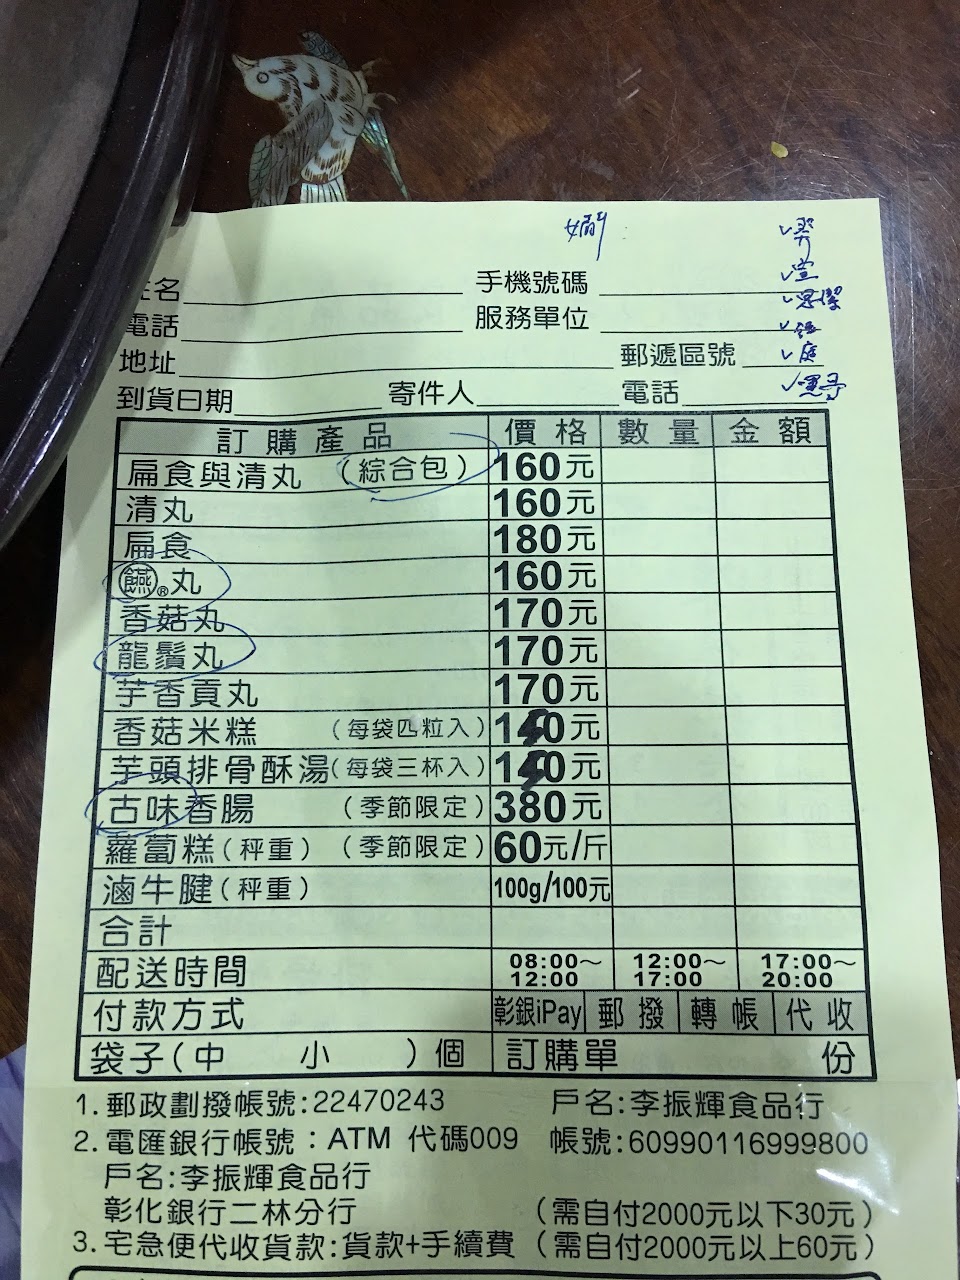 嫺
✓翠
✓萱
✓思潔
✓庭
姓名 手機號碼
電話 服務單位
地址 郵遞區號
到貨日期 寄件人 電話
訂購產品 價格 數量 金額
扁食與清丸 (綜合包) 160元
清丸 160元
扁食 180元
䜩®丸 160元
香菇丸 170元
龍鬚丸 170元
芋香貢丸 170元
香菇米糕 (每袋四粒入) 150元
芋頭排骨酥湯(每袋三杯入) 150元
古味香腸 (季節限定) 380元
蘿蔔糕(秤重) (季節限定) 60元/斤
滷牛腱(秤重) 100g/100元
合計
配送時間 08:00～12:00 12:00～17:00 17:00～20:00
付款方式 彰銀iPay 郵撥 轉帳 代收
袋子(中 小 )個 訂購單 份
1.郵政劃撥帳號:22470243 戶名:李振輝食品行
2.電匯銀行帳號:ATM 代碼009 帳號:60990116999800
戶名:李振輝食品行
彰化銀行二林分行 (需自付2000元以下30元)
3.宅急便代收貨款:貨款+手續費 (需自付2000元以上60元)